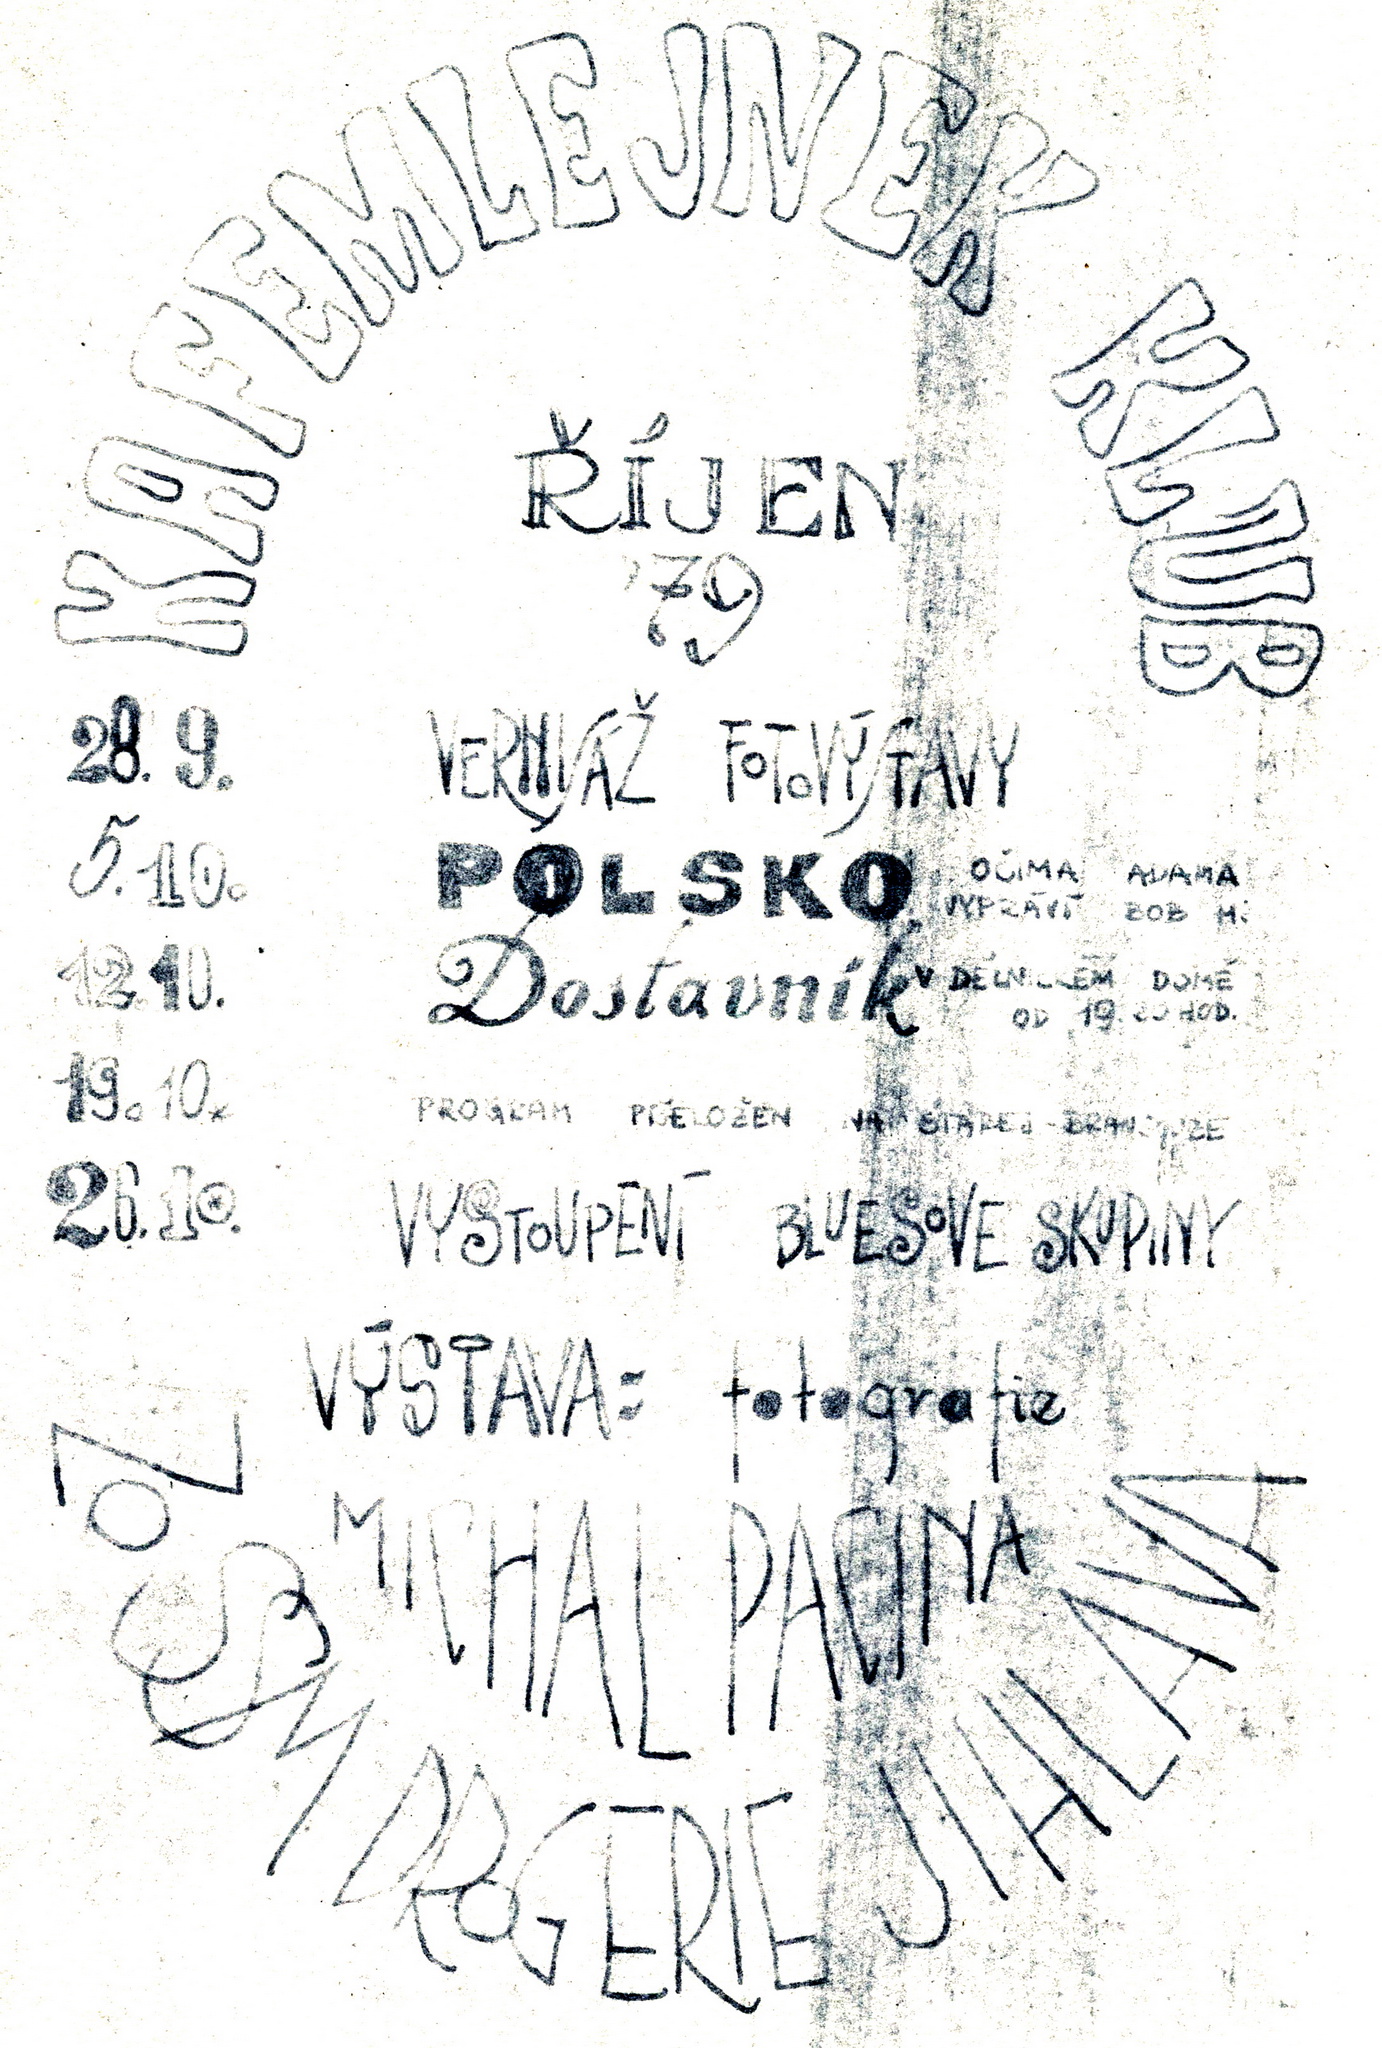 KAFEMLEJNEK KLUB
ŘÍJEN
'79
28. 9. VERNISÁŽ FOTOVÝSTAVY
5. 10. POLSKO OČIMA ADAMA
VYPRÁVÍ BOB M.
12. 10. Dostavník V DĚLNICKÉM DOMĚ
OD 19.00 HOD.
19. 10. PROGRAM PŘELOŽEN NA
26. 10. VYSTOUPENÍ BLUESOVÉ SKUPINY
VÝSTAVA: fotografie
MICHAL PACINA
DROGERIE JIHLAVA